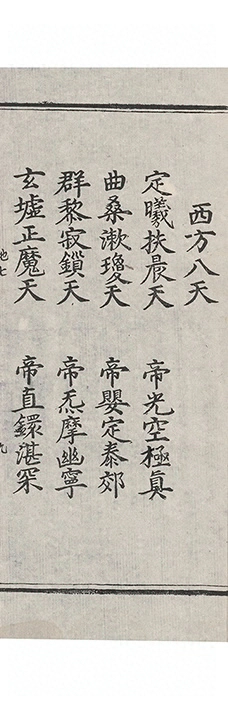 西方八天
定曦扶晨天　帝光空極真
曲桑漱瓊天　帝嬰定泰郊
群黎寂鎖天　帝炁摩幽寧
玄墟正魔天　帝直鐶湛罙